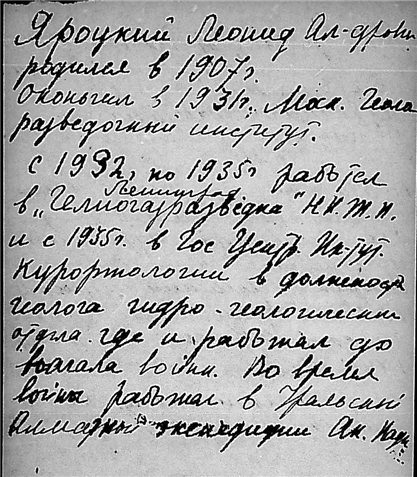 Яроцкий Леонид Ал-дрови
родился в 1907г.
Окончил в 1931г. Мос. Геола
разведочный институт.
С 1932, по 1935г работал
Ленинград
в „Гелиогазразведка" Н.К.Т.П.
и с 1935г. в Гос Центр. Ин-тут.
Курортологии в должности
геолога гидро-геологическии
отдела где и работал до
начала войны. Во время
войны работал в Уральский
Алмазный экспедиции Ак. Наук